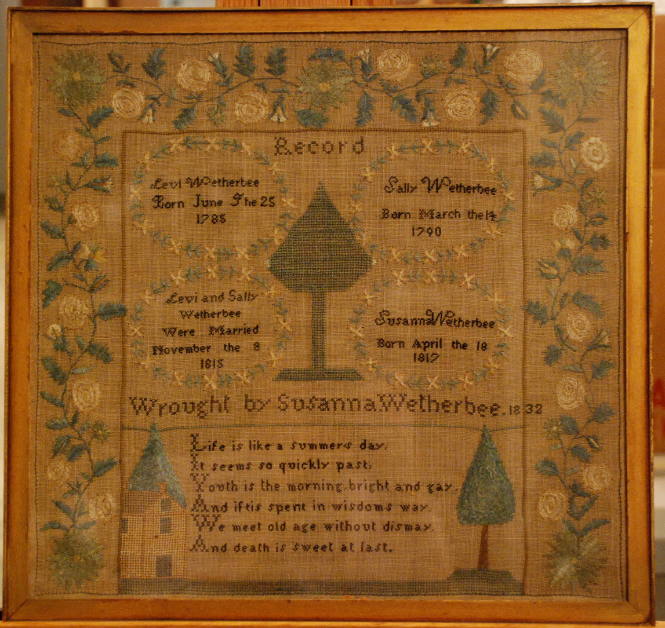 Record
Levi Wetherbee
Born June The 25
1785
Sally Wetherbee
Born March the 14
1790
Levi and Sally
Wetherbee
Were Married
November the 8
1815
Susanna Wetherbee
Born April the 18
1817
Wrought by Susanna Wetherbee. 1832
Life is like a summers day,
It seems so quickly past,
Youth is the morning, bright and gay,
And iftis spent in wisdoms way,
We meet old age without dismay
And death is sweet at last.